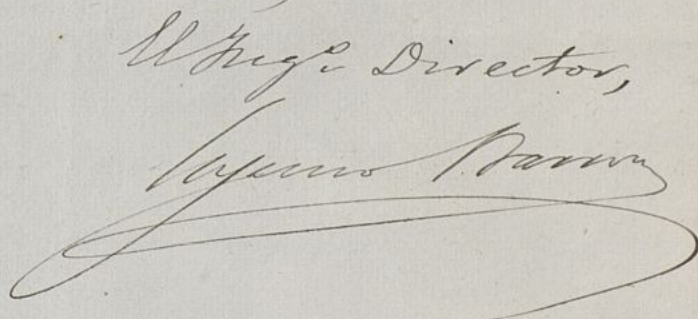 El Ingº Director,
Eugenio Barron